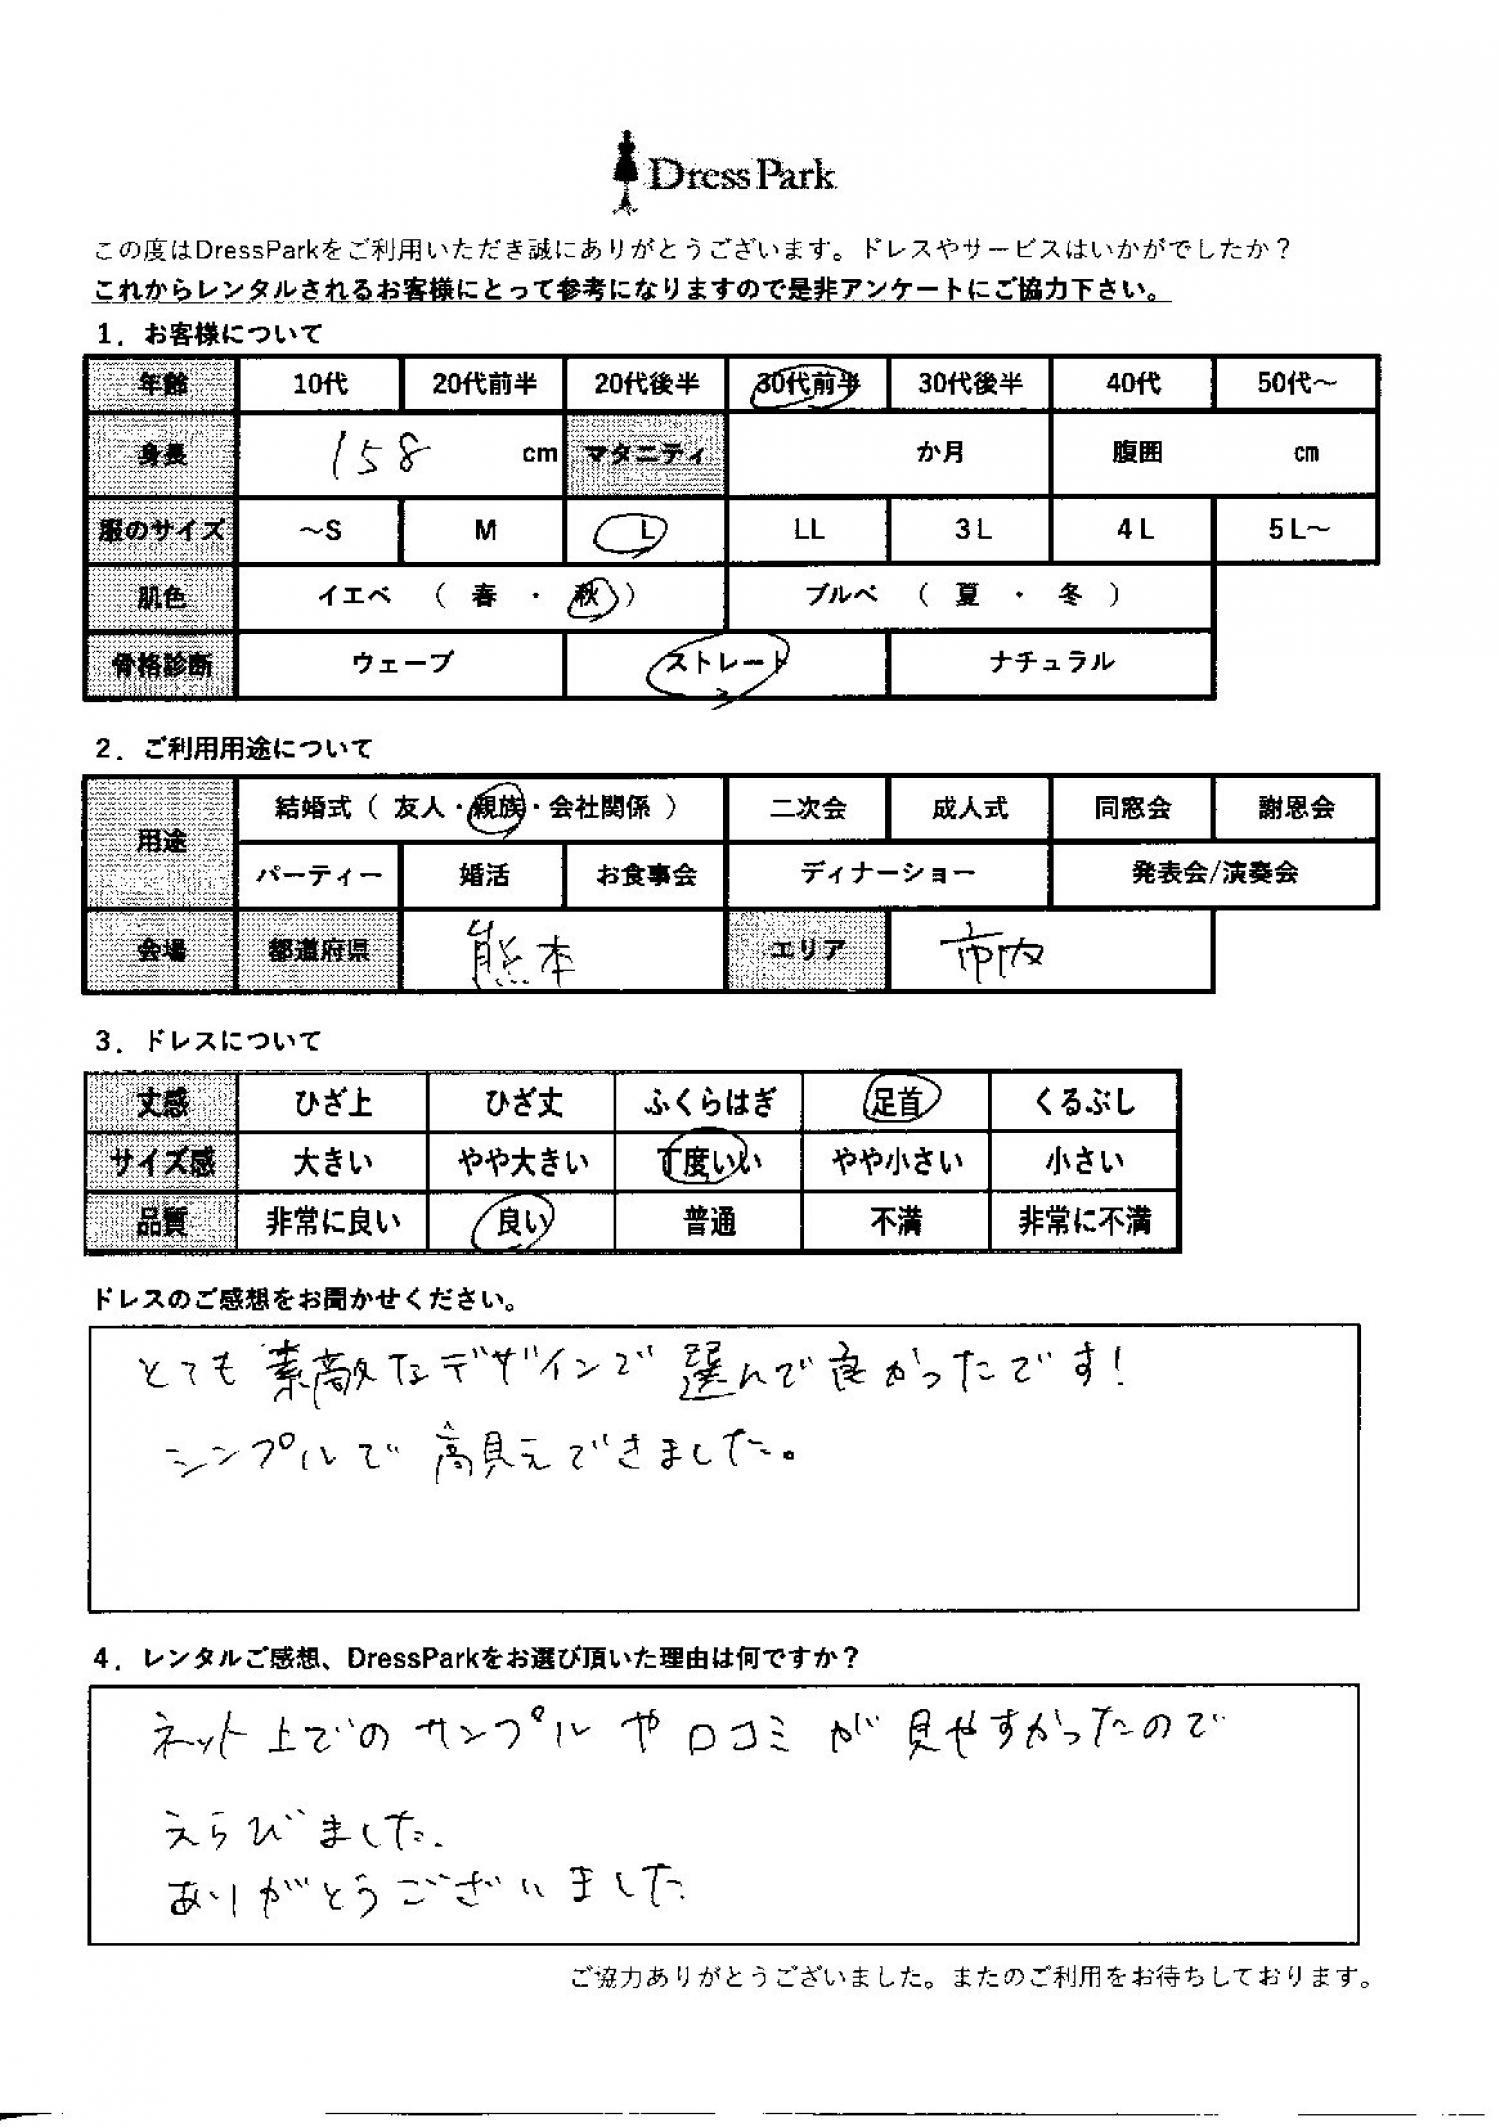 DressPark
この度はDressParkをご利用いただき誠にありがとうございます。ドレスやサービスはいかがでしたか？
これからレンタルされるお客様にとって参考になりますので是非アンケートにご協力下さい。
1．お客様について
年齢 10代 20代前半 20代後半 30代前半 30代後半 40代 50代～
身長 158 cm マタニティ か月 腹囲 cm
服のサイズ ～S M L LL 3L 4L 5L～
肌色 イエベ （ 春 ・ 秋 ） ブルベ （ 夏 ・ 冬 ）
骨格診断 ウェーブ ストレート ナチュラル
2．ご利用用途について
用途 結婚式（ 友人・親族・会社関係 ） 二次会 成人式 同窓会 謝恩会
パーティー 婚活 お食事会 ディナーショー 発表会/演奏会
会場 都道府県 熊本 エリア 市内
3．ドレスについて
丈感 ひざ上 ひざ丈 ふくらはぎ 足首 くるぶし
サイズ感 大きい やや大きい 丁度いい やや小さい 小さい
品質 非常に良い 良い 普通 不満 非常に不満
ドレスのご感想をお聞かせください。
とても素敵なデザインで選んで良かったです！
シンプルで高見えできました。
4．レンタルご感想、DressParkをお選び頂いた理由は何ですか？
ネット上でのサンプルや口コミが見やすかったので
えらびました.
ありがとうございました
ご協力ありがとうございました。またのご利用をお待ちしております。